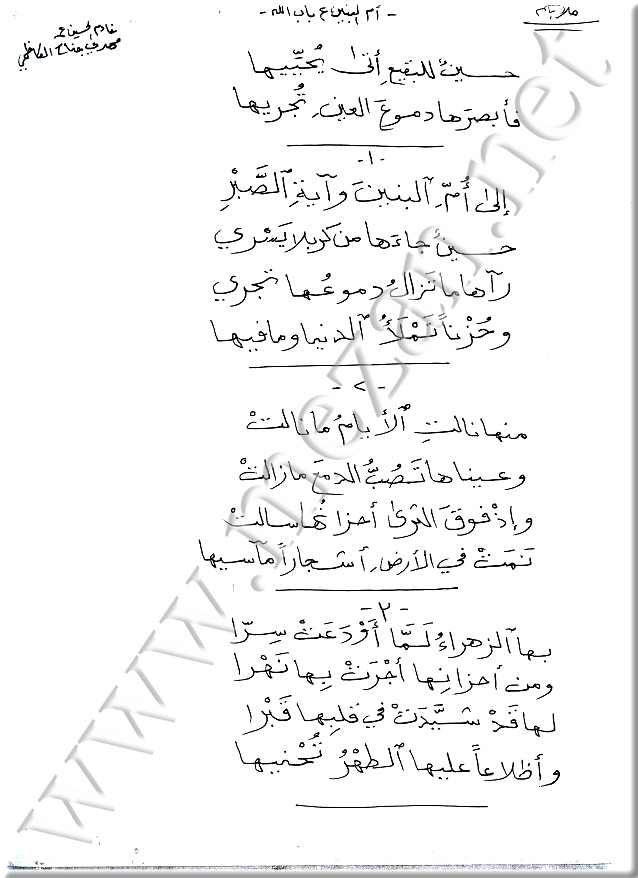 - أم البنين ع باب الله -
خادم الحسين ع
مهدي جناح الكاظمي
حسينٌ للبقيعِ أتىٰ يُحيِّيها
فأبصرَها دموعَ العينِ تُجريها
-١-
إلىٰ أُمِّ ٱلبنينَ وآيةِ ٱلصَّبْرِ
حسينٌ جاءَها من كربلا يَسْري
رآها ما تَزالُ دموعُها تجري
وحُزْناً تَمْلَأُ ٱلدنيا وما فيها
-٢-
منها نالتِ ٱلأيامُ ما نالتْ
وعيناها تَصُبُّ الدمعَ ما زالتْ
وإذْ فوقَ الثرىٰ أحزانُها سالتْ
نَمَتْ في الأرضِ أشجاراً مآسيها
-٣-
بها ٱلزهراءُ لَمَّا أَوْدَعَتْ سِرّا
ومن أحزانِها أجْرَتْ بِها نَهْرا
لها قَدْ شيَّدَتْ في قلبِها قَبْرا
وأظلاعاً عليها ٱلطهْرُ تُحْنيها
www.mezan.net